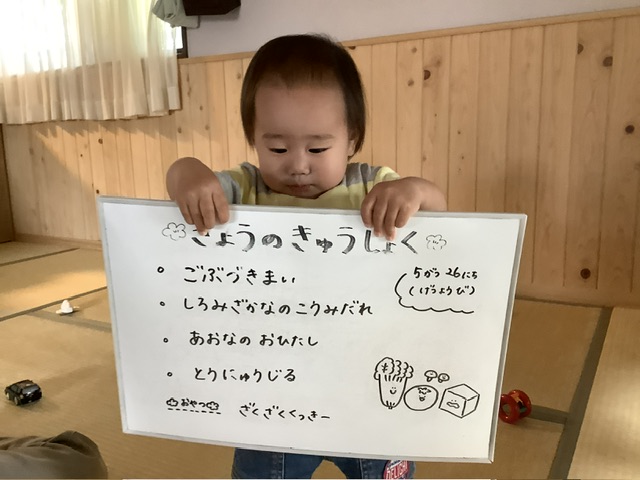 きょうのきゅうしょく
5がつ 26にち
(げつようび)
ごぶづきまい
しろみざかなのこうみだれ
あおなの おひたし
とりにゅうじる
おやつ ざくざくくっきー